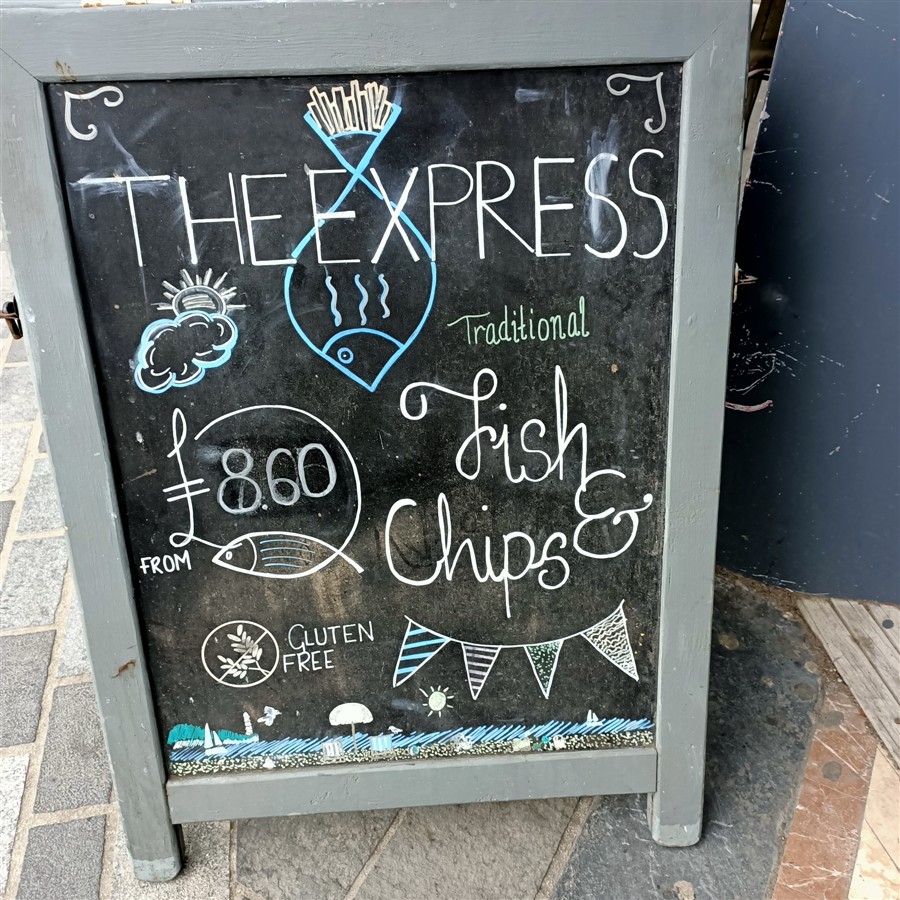 THE EXPRESS
Traditional
Fish &
Chips
£8.60
FROM
GLUTEN
FREE